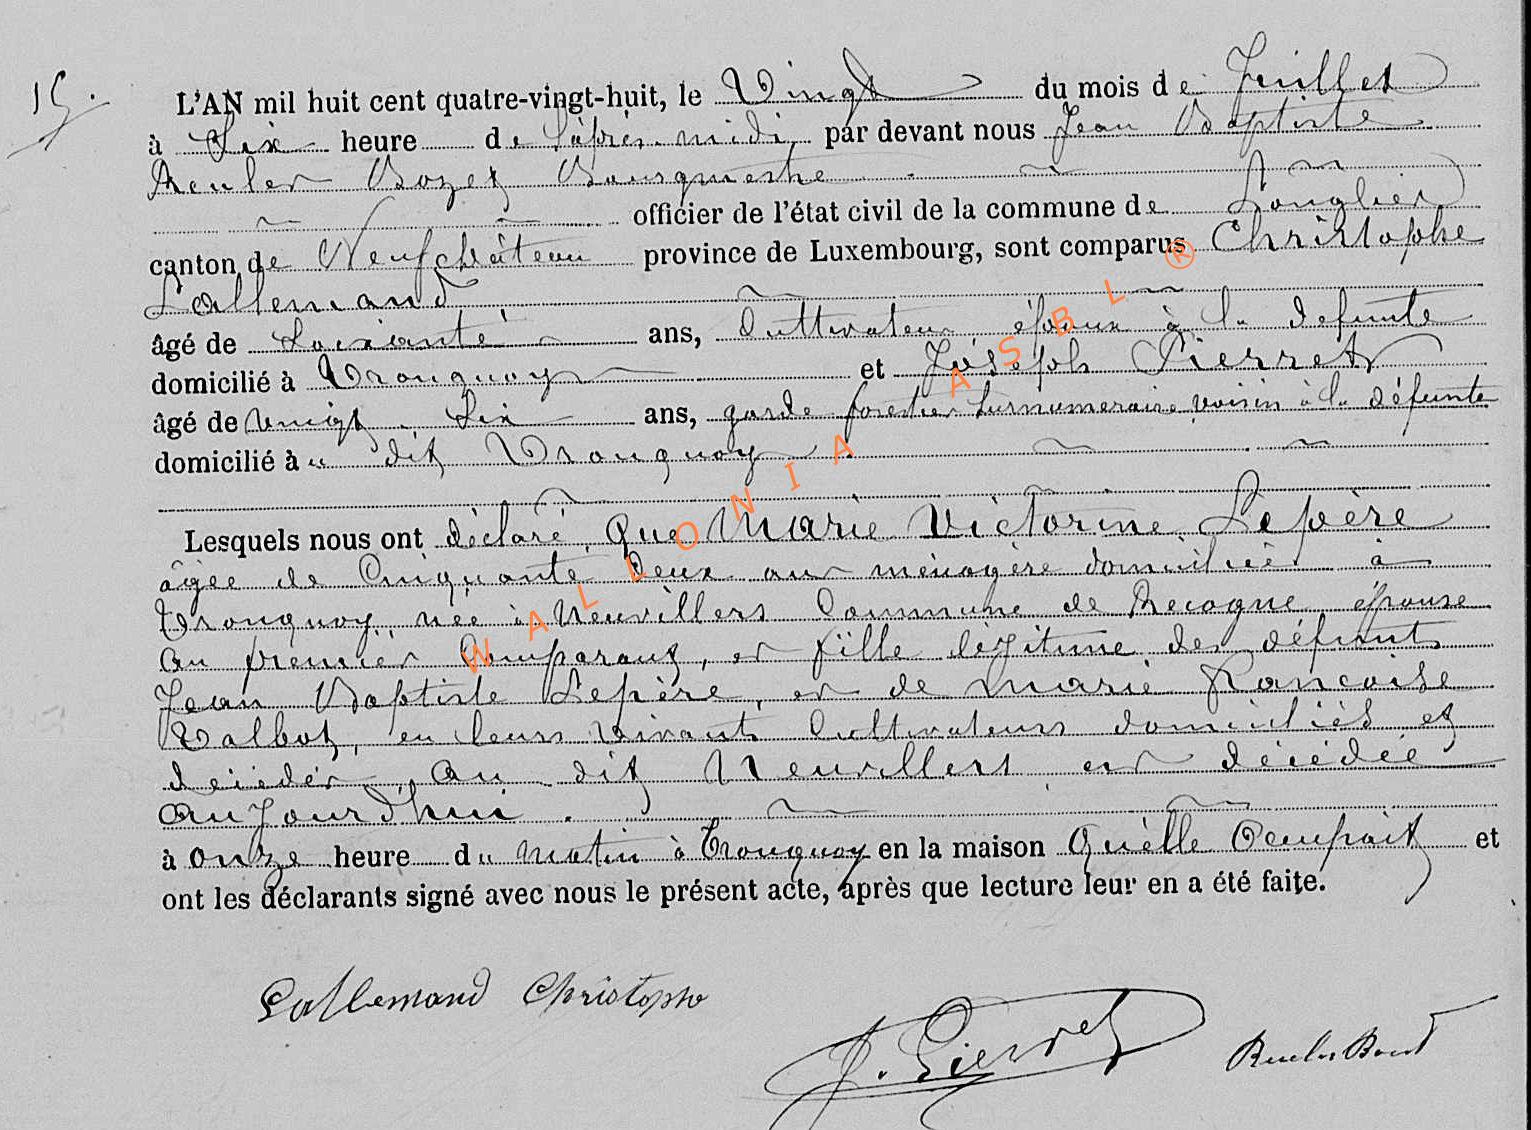 15.
L'AN mil huit cent quatre-vingt-huit, le Vingt du mois de Juillet
à Six heure de l'après-midi, par devant nous Jean Baptiste
Reuler Bozet Bourgmestre
officier de l'état civil de la commune de Longlier
canton de Neufchâteau province de Luxembourg, sont comparus Christophe
Lallemand
âgé de Soixante ans, Cultivateur époux à la defunte
domicilié à Tronquoy et Joseph Pierret
âgé de vingt Six ans, garde forestier surnumeraire voisin à la défunte
domicilié à u dit Tronquoy
Lesquels nous ont déclaré, que Marie Victorine Lepère
âgée de Cinquante deux ans ménagère domiciliée à
Tronquoy, née à Neuvillers Commune de Recogne, épouse
au premier Comparant, et fille légitime des défunts
Jean Baptiste Lepère, et de Marie Francoise
Talbot, en leurs vivants Cultivateurs domiciliés et
décédés, au dit Neuvillers, est décédée
aujourd'hui.
à onze heure du matin à Tronquoy en la maison Qu'elle Occupait et
ont les déclarants signé avec nous le présent acte, après que lecture leur en a été faite.
Lallemand Christophe
J. Pierret
WALLONIA ASBL ®